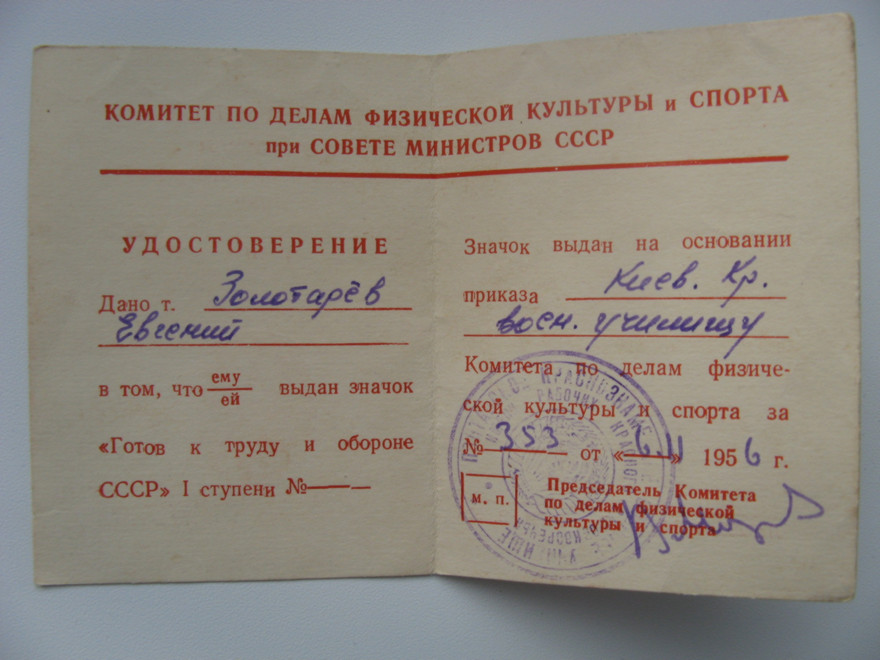 КОМИТЕТ ПО ДЕЛАМ ФИЗИЧЕСКОЙ КУЛЬТУРЫ и СПОРТА
при СОВЕТЕ МИНИСТРОВ СССР
УДОСТОВЕРЕНИЕ
Дано т. Золотарёв
Евгений
в том, что ему
ей выдан значок
«Готов к труду и обороне
СССР» I ступени №
Значок выдан на основании
приказа Киев. Кр.
воен. училищу
Комитета по делам физиче-
ской культуры и спорта за
№ 353 от « » 1956 г.
м. п.
Председатель Комитета
по делам физической
культуры и спорта